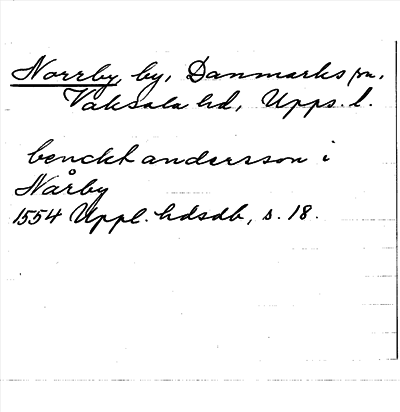 Norrby, by, Danmarks sn,
Vaksala hd, Upps. l.
benckt andersson i
Nårby
1554 Uppl. hdsdb, s. 18.